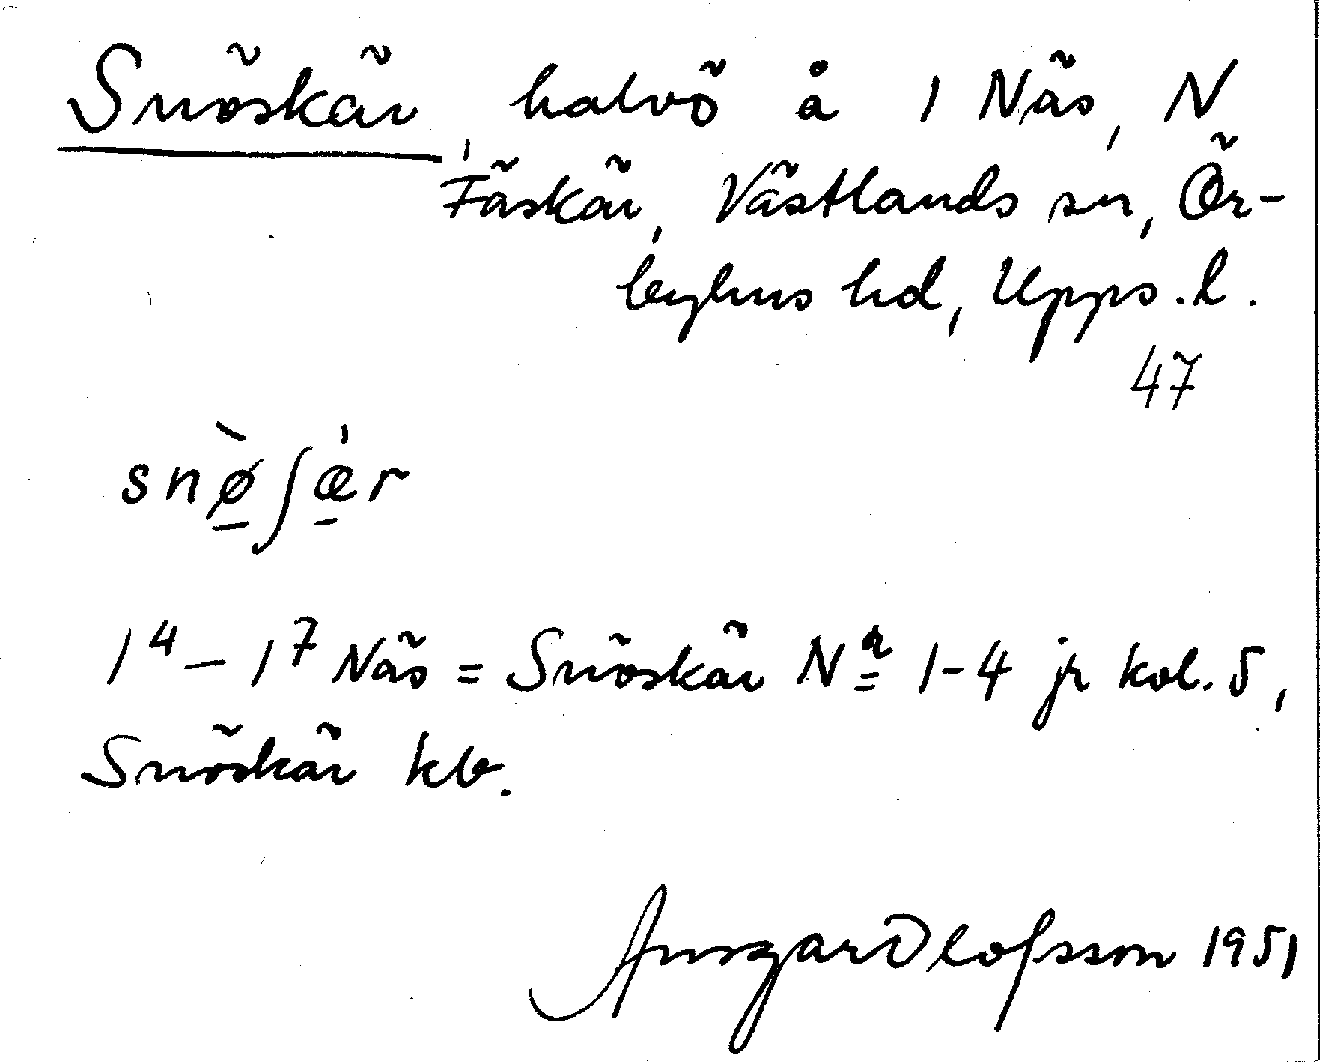 Snöskär, halvö å 1 Näs, N
Fäskär, Västlands sn, Ör-
byhus hd, Upps. l.
47
snø̱̀ʃæ̱̍r
1⁴–1⁷ Näs = Snöskär Nr 1-4 jr kol. 5,
Snöskär kb.
Ansgar Olofsson 1951